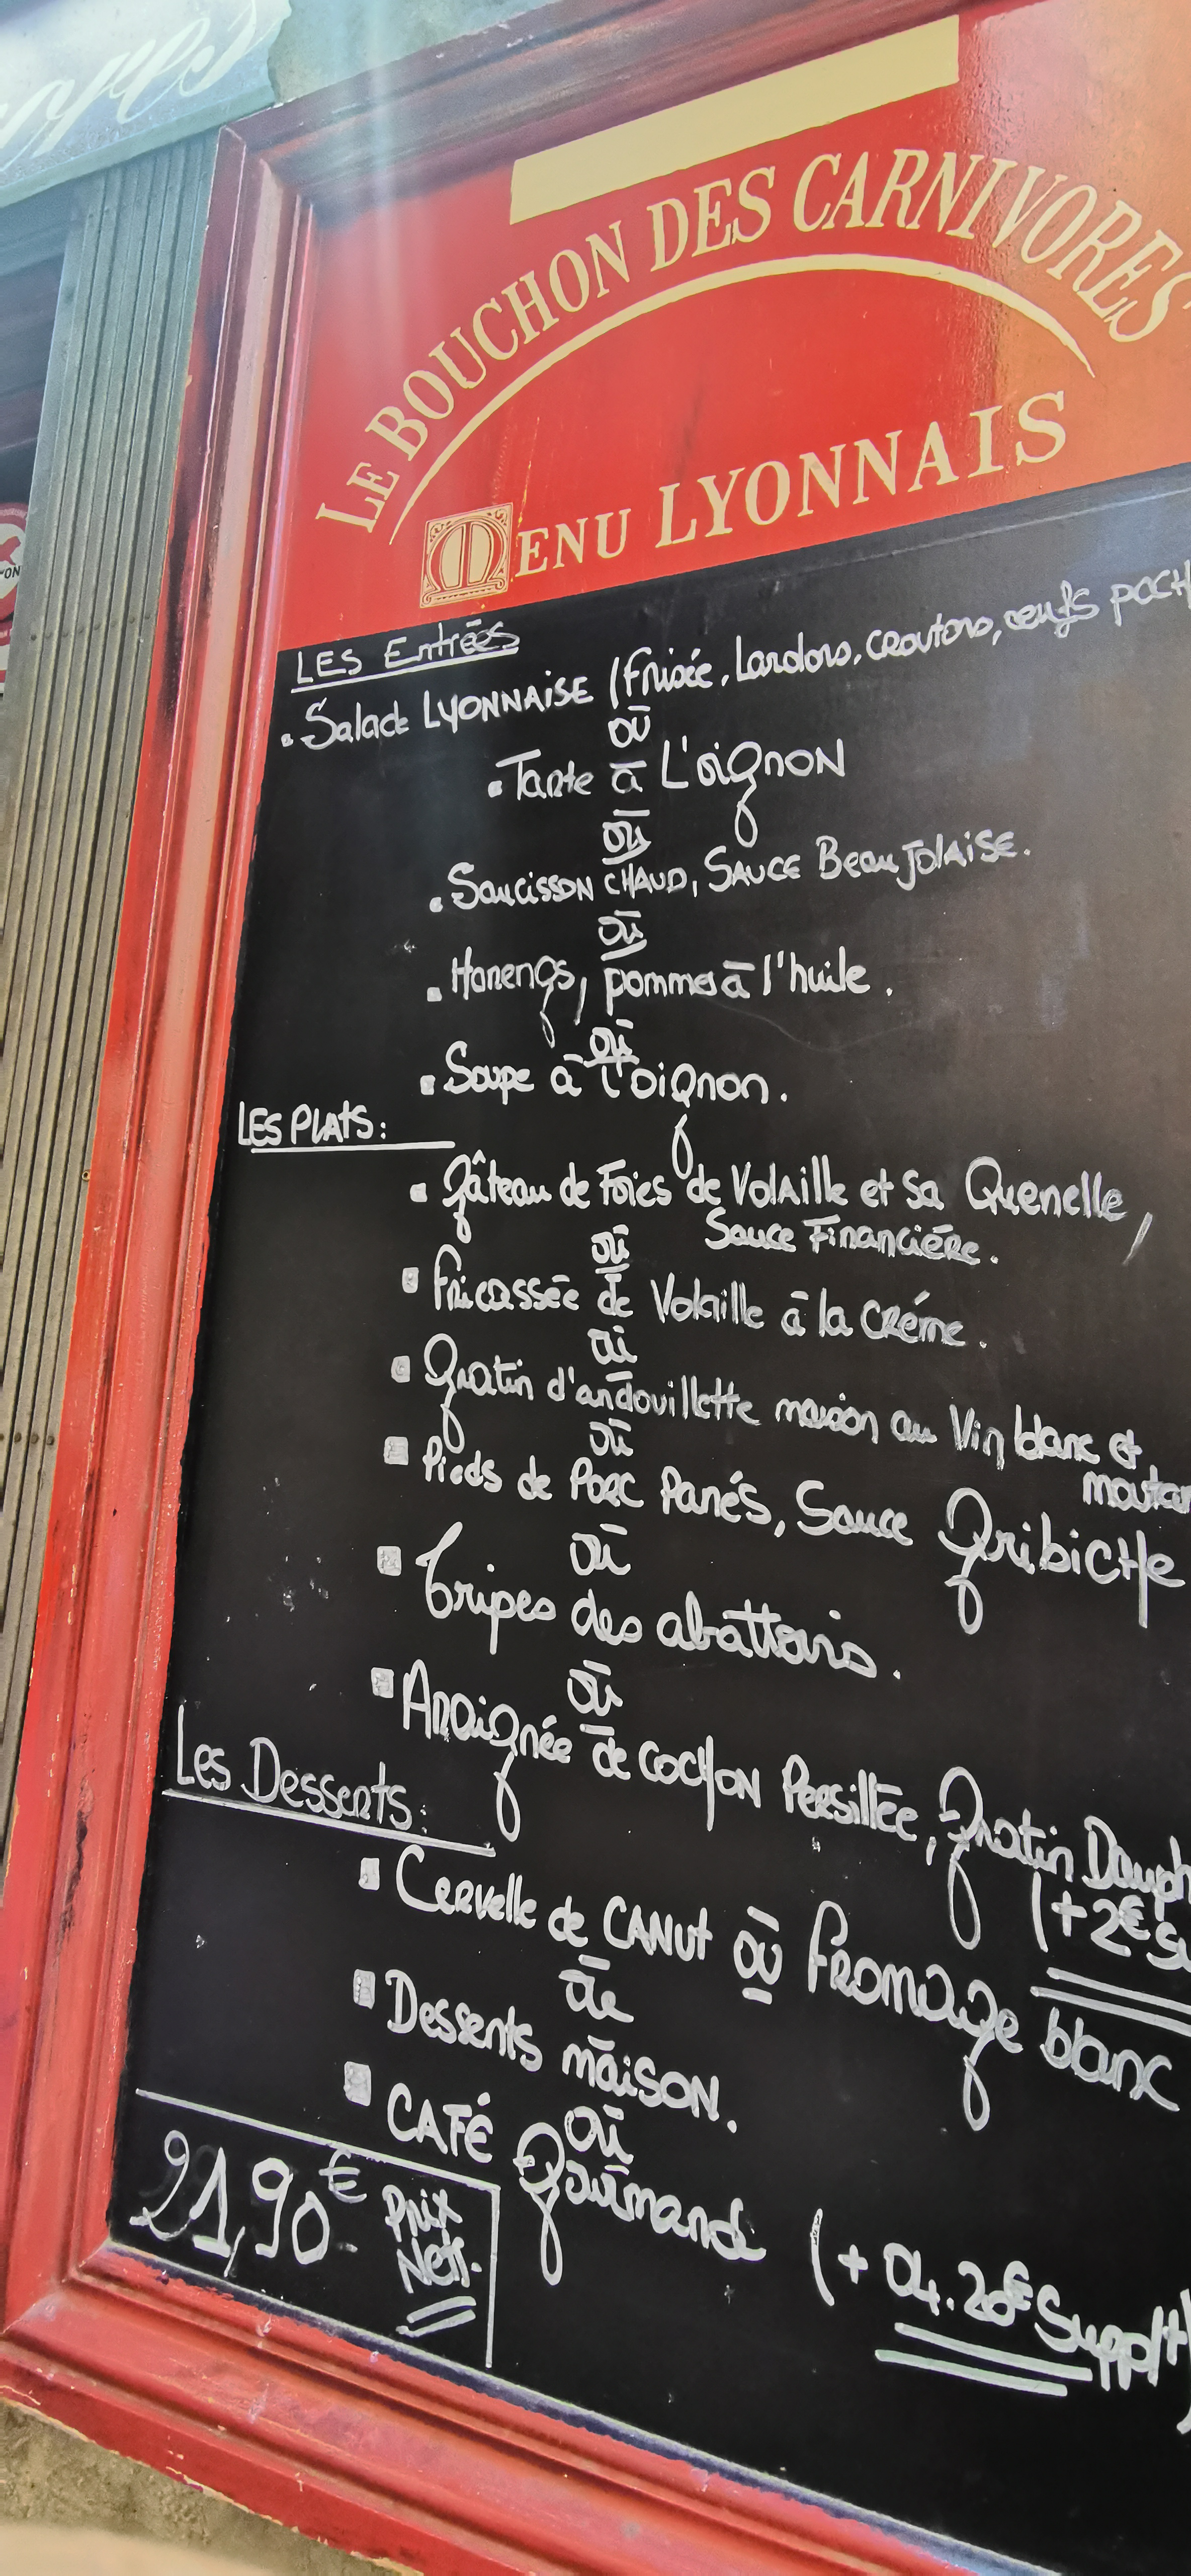 LE BOUCHON DES CARNIVORES
MENU LYONNAIS
LES Entrées
. Salade LYONNAISE (Frisée, Lardons, croutons, œufs POCH
OÙ
. Tarte à L'oignon
OÙ
. Saucisson CHAUD, SAUCE Beaujolaise.
OÙ
. Harengs, pommes à l'huile.
OÙ
. Soupe à l'oignon.
LES PLATS:
. Gâteau de Foies de Volaille et sa Quenelle,
Sauce Financière.
OÙ
. Fricassée de Volaille à la créme.
OÙ
. Gratin d'andouillette maison au Vin blanc et
moutar
OÙ
. Pieds de Porc Panés, Sauce GribicHe
OÙ
. Tripes des abattoirs.
OÙ
. Araignée de cocHon Persillée, Gratin Dauph
(+2€ Su
Les Desserts:
. Cervelle de CANUt OÙ Fromage blanc
OÙ
. Desserts maison.
OÙ
. CAFÉ Gourmand (+ 04.20€ Supplt)
21,90€ Prix
Nets.